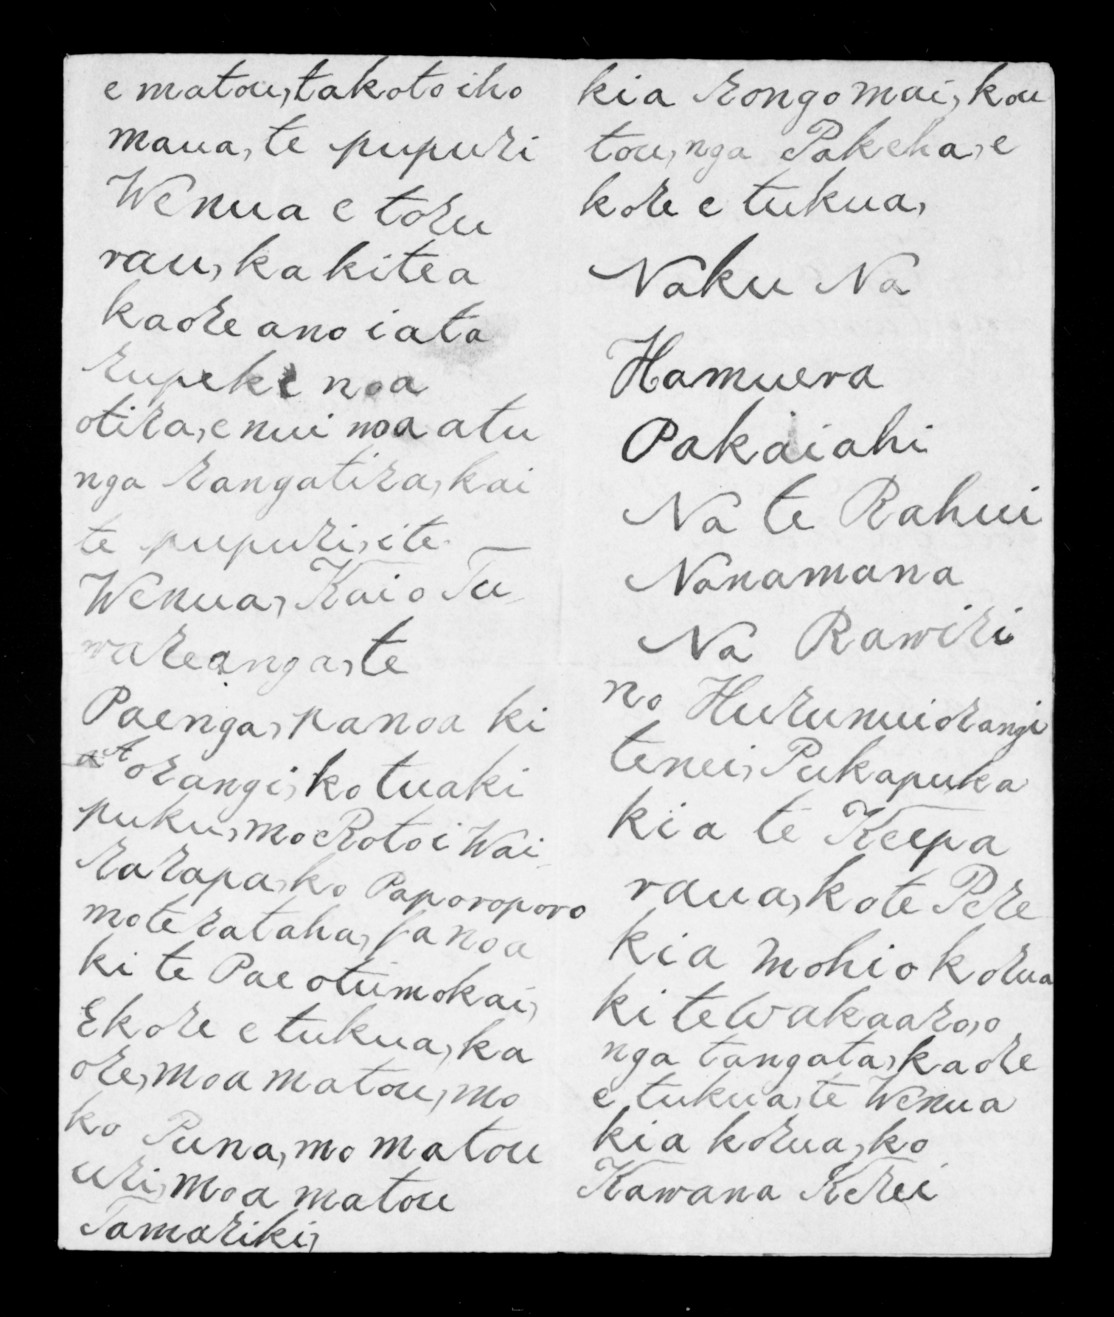 e matou, takoto iho
maua, te pupuri
Wenua e toru
rau, ka kitea
kaore ano i ata
rupeke noa
otira, e nui noa atu
nga rangatira, kai
te pupuri, i te
Wenua, Kai o Tu
wareanga, te
Paenga, pa noa ki
Aorangi, ko tuaki
puku, mo eRoto i Wai
rarapa, ko Paporoporo
mo te rataha, pa noa
ki te Pae otumokai,
Ekore e tukua, ka
ore, moa matou, mo
ko Puna, mo matou
uri, moa matou
Tamariki,
kia rongo mai, kou
tou, nga Pakeha, e
kore e tukua,
Naku Na
Hamuera
Pakaiahi
Na te Rahui
Nanamana
Na Rawiri
no Hurunuiorangi
tenei, Pukapuka
kia te Keepa
raua, ko te Pere
kia mohio korua
ki te Wakaaro, o
nga tangata, kaore
e tukua, te Wenua
kia korua, ko
Kawana Kerei